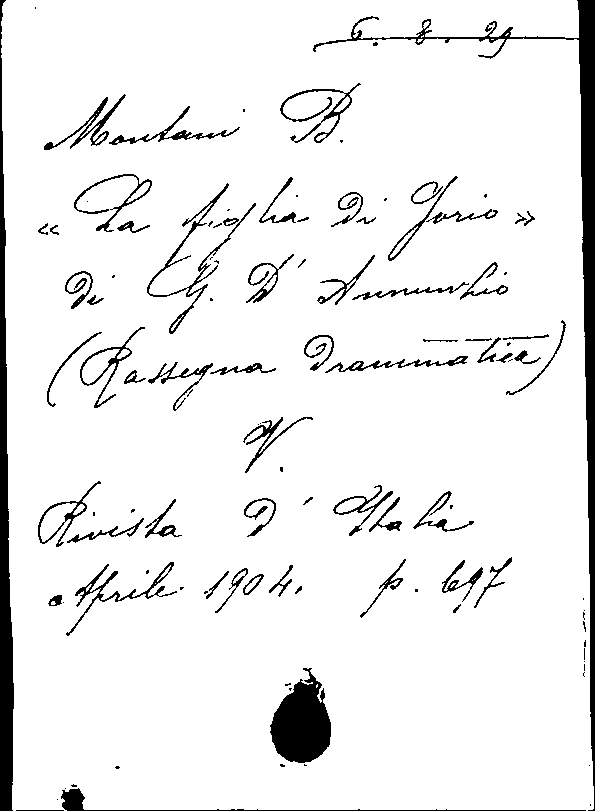 6. 8. 29
Montani B.
« La figlia di Jorio »
di G. D' Annunzio
(Rassegna drammatica)
V.
Rivista d' Italia
Aprile 1904. p. 697